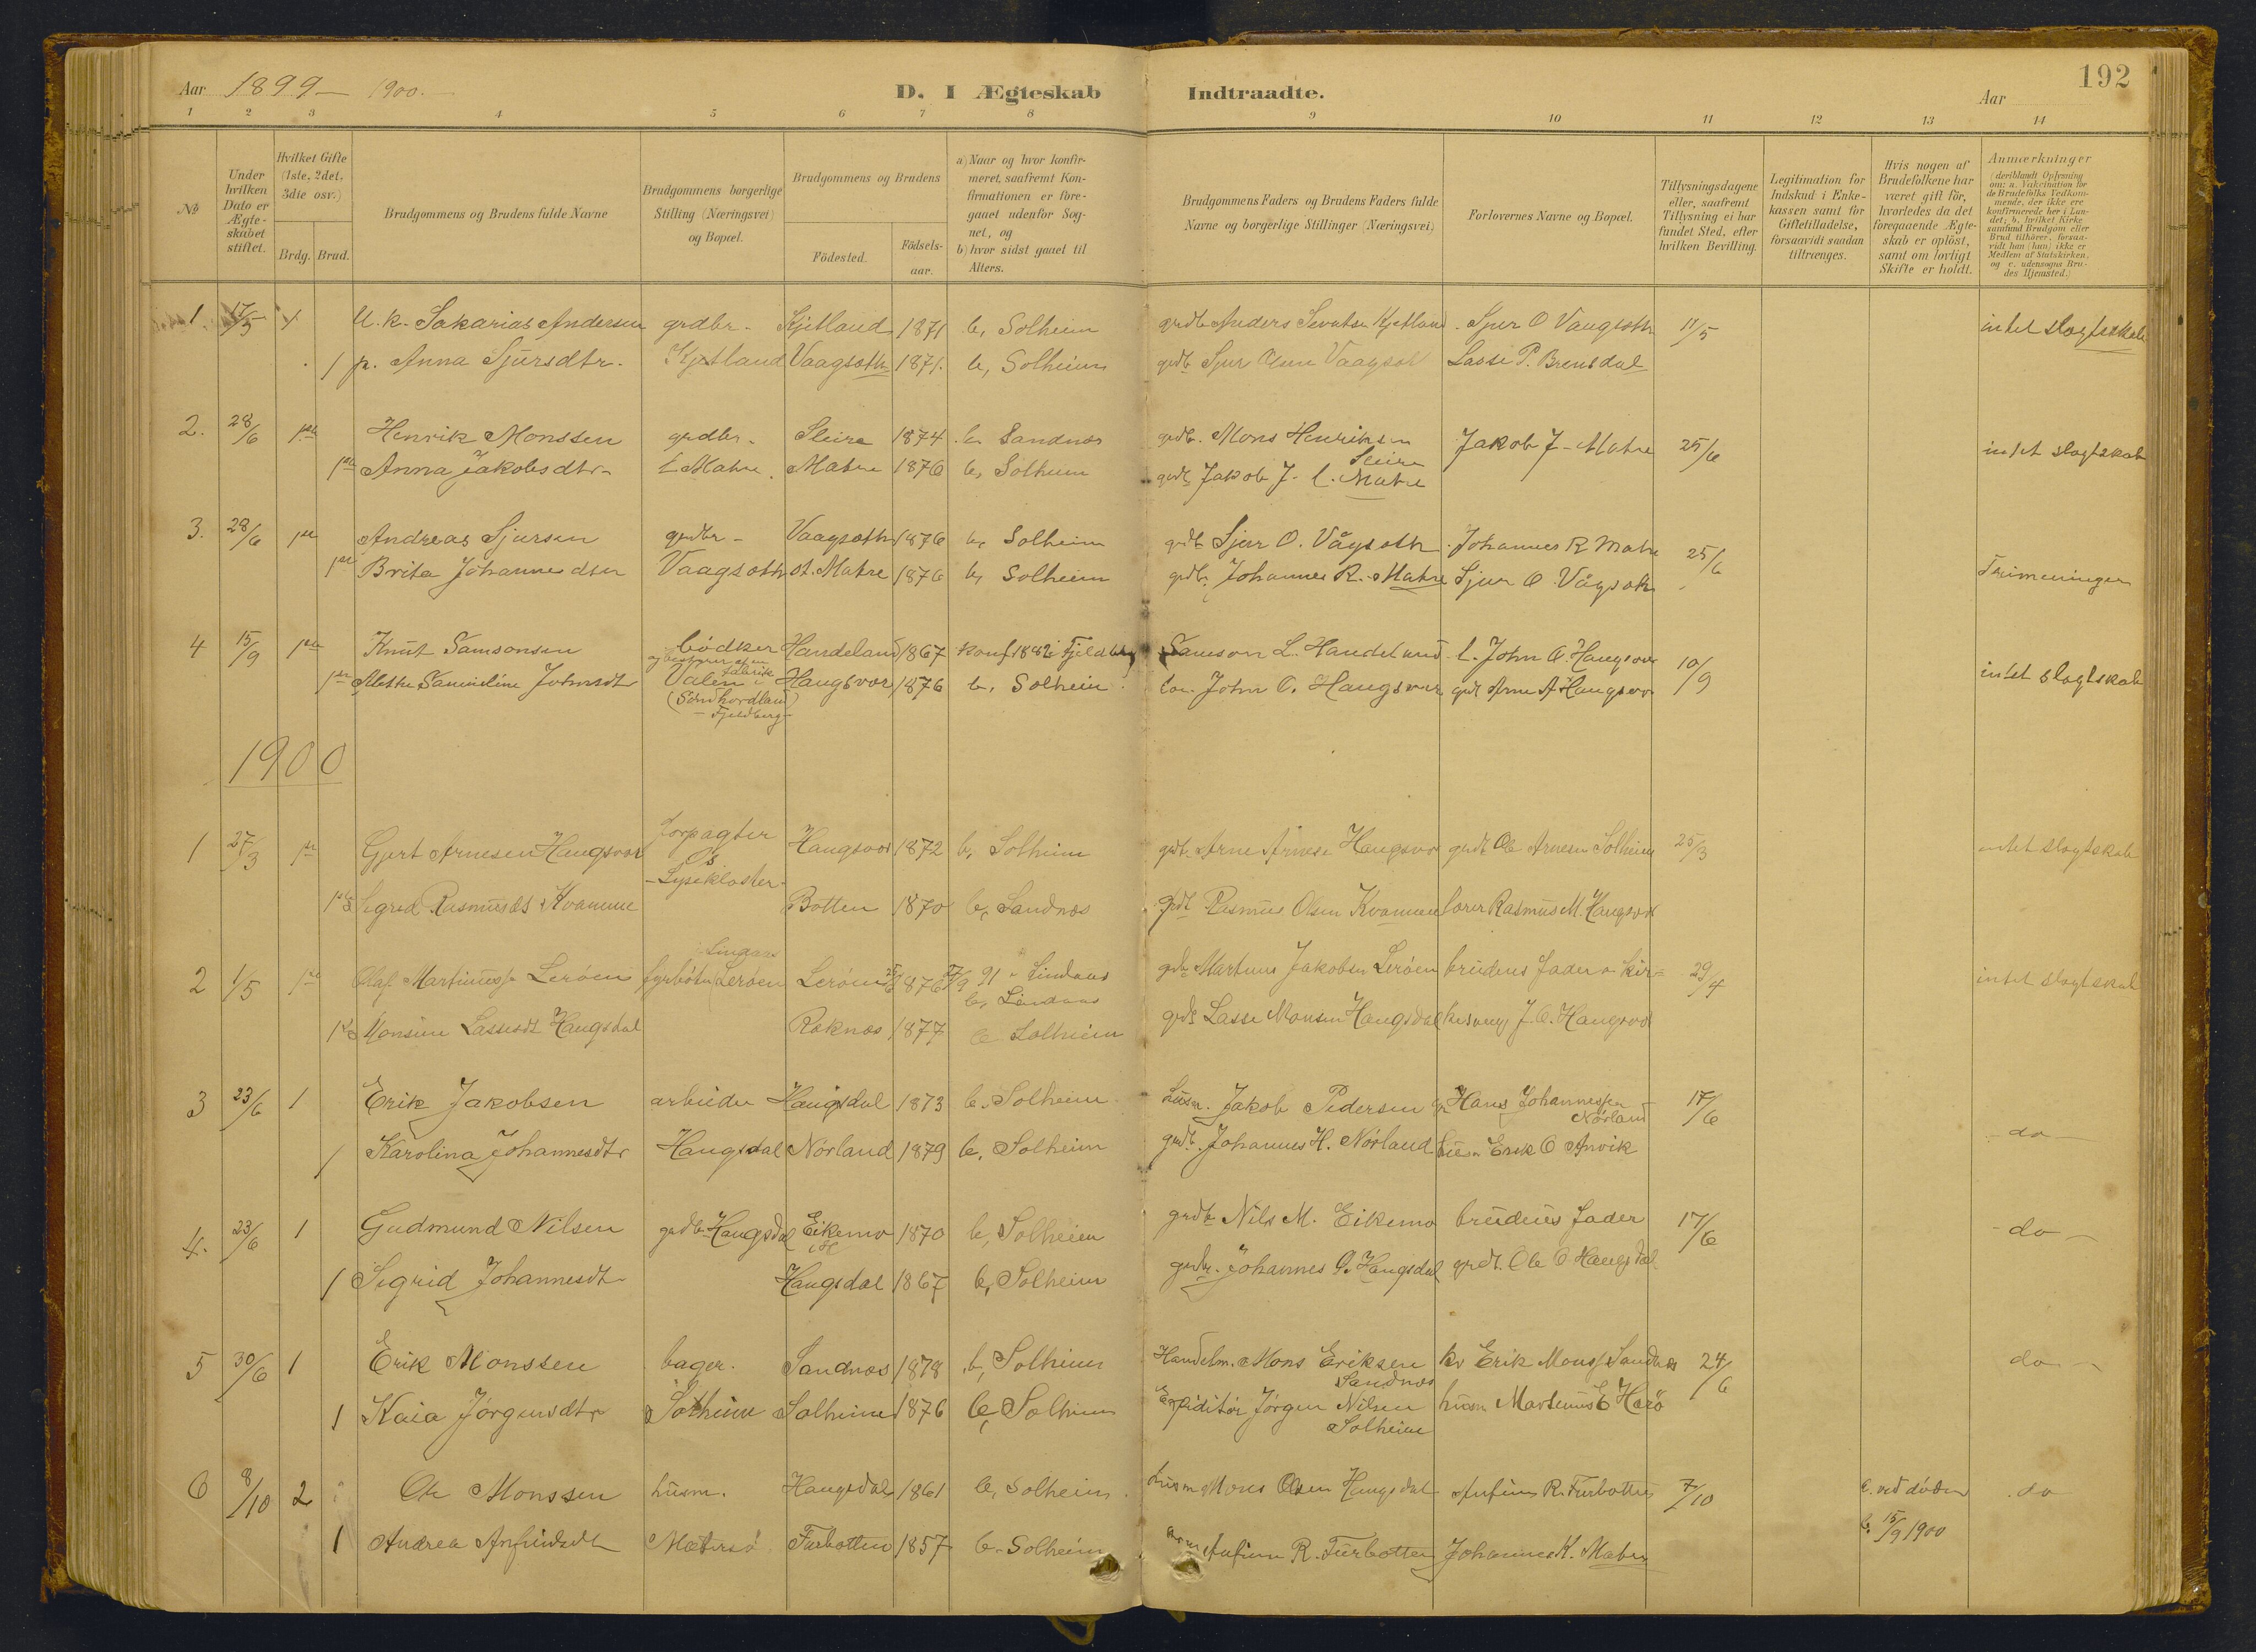 Aar 1899 - 1900.
D. I Ægteskab Indtraadte.
Aar
192
1 2 3 4 5 6 7 8 9 10 11 12 13 14
№
Under hvilken Dato er Ægteskabet stiftet.
Hvilket Gifte (1ste, 2det, 3die osv.)
Brdg. Brud.
Brudgommens og Brudens fulde Navne
Brudgommens borgerlige Stilling (Næringsvei) og Bopæl.
Brudgommens og Brudens
Födested.
Födselsaar.
a) Naar og hvor konfirmeret, saafremt Konfirmationen er foregaaet udenfor Sognet, og
b) hvor sidst gaaet til Alters.
Brudgommens Faders og Brudens Faders fulde Navne og borgerlige Stillinger (Næringsvei)
Forlovernes Navne og Bopæl.
Tillysningsdagene eller, saafremt Tillysning ei har fundet Sted, efter hvilken Bevilling.
Legitimation for Indskud i Enkekassen samt for Giftetilladelse, forsaavidt saadan tiltrænges.
Hvis nogen af Brudefolkene har været gift för, hvorledes da det foregaaende Ægteskab er oplöst, samt om lovligt Skifte er holdt.
Anmærkninger (deriblandt Oplysning om: a. Vakcination for de Brudefolks Vedkommende, der ikke ere konfirmerede her i Landet; b. hvilket Kirkesamfund Brudgom eller Brud tilhörer, forsaavidt han (hun) ikke er Medlem af Statskirken, og c. udensogns Brudes Hjemsted.)
1 17/5 1 U.k. Sakarias Andersen grdbr. Kjetland 1871 b, Solheim grdb Anders Kjetland Sjur O Vaagsoth 11/5 intet slægtskab
1 p. Anna Sjursdtr. Kjetland Vaagsoth 1871. b, Solheim grdb Sjur Olsen Vaagsot Lasse P. Brensdal
2. 28/6 1ste Henrik Monssen grdbr. Sleire 1874 b. Sandnæs grdb. Mons Henriksen Sleire Jakob J. Matre 25/6 intet slægtskab
1ste Anna Jakobsdtr. l. Matre Matre 1876 b, Solheim grdb Jakob J. l. Matre
3. 28/6 1ste Andreas Sjursen grdbr - Vaagsoth 1876 b, Solheim grdb Sjur O. Vågsoth Johannes R Matre 25/6 Tremeninger
1ste Brita Johannesdter Vaagsoth st. Matre 1876 b, Solheim grdb. Johannes R. Matre Sjur O Vågsoth
4 15/9 1ste Knut Samsonsen bödker Handeland 1867 konf 1882 i Fjeldberg Samson L. Handeland l. John O. Haugsvær 10/9 intet slægtskab
og bestyrer af en fabrik
1ste Alethe Johnsdt Valen i Haugsvær 1876 b. Solheim. John O. Haugsvær grdb Arne A Haugsvær
(Söndhordland)
- Fjeldberg -
1900
1 27/3 1ste Gjert Arnesen Haugsvær forpagter Haugsvær 1872 b, Solheim grdb. Arne Arnesen Haugsvær grdb Ole Arnesen Solheim 25/3 intet slægtskab
Os
- Lysekloster -
1ste Sigrid Rasmusdt Kvamme Botten 1870 b, Sandnæs grdb Rasmus Olsen Kvamme Rasmus M. Haugsvær
Lindaas
2 1/5 1ste Olaf Martinussen Leröen fyrböter Leröen Leröen 1876 91 i Lindaas grdb Martinus Jakobsen Leröen brudens fader o kir- 29/4 intet slægtskab
b, Lindaas
1ste Monsine Lassesdt Haugsdal Röknæs 1877 b Solheim grdb Lasse Monsen Haugsdal kesang J. O. Haugsvær
3 23/6 1 Erik Jakobsen arbeider Haugsdal 1873 b. Solheim. husm. Jakob Pedersen gr Hans Johannessen Nörland 17/6 do
1 Karolina Johannesdtr Haugsdal Nörland 1879 b, Solheim grdb. Johannes H. Nörland husm Erik O Anvik
4. 23/6 1 Gudmund Nilsen grdb Haugsdal Eikemo 1870 b, Solheim grdb Nils M. Eikemo brudens fader 17/6 do
1 Sigrid Johannesdt Haugsdal 1867 b, Solheim grdbr. Johannes O. Haugsdal grdb. Ole O Haugsdal
5 30/6 1 Erik Monssen bager. Sandnæs 1878 b, Solheim Handelm. Mons Eriksen Sandnæs kv Erik Monss Sandnæs 24/6 do
1 Kaia Jörgensdtr Solheim Solheim 1876 b, Solheim Expeditör Jörgen Nilsen Solheim husm Martinus E Herö
6 8/10 2 Ole Monssen husm. Haugsdal 1861 b, Solheim. husm Mons Olsen Haugsdal Anfinn R. Furbotten 7/10 a. ved döden do
b. 15/9 1900
1 Andrea Anfindsdt Matresö Furbotten 1857 b. Solheim Anfinn R. Furbotten Johannes K. Matre